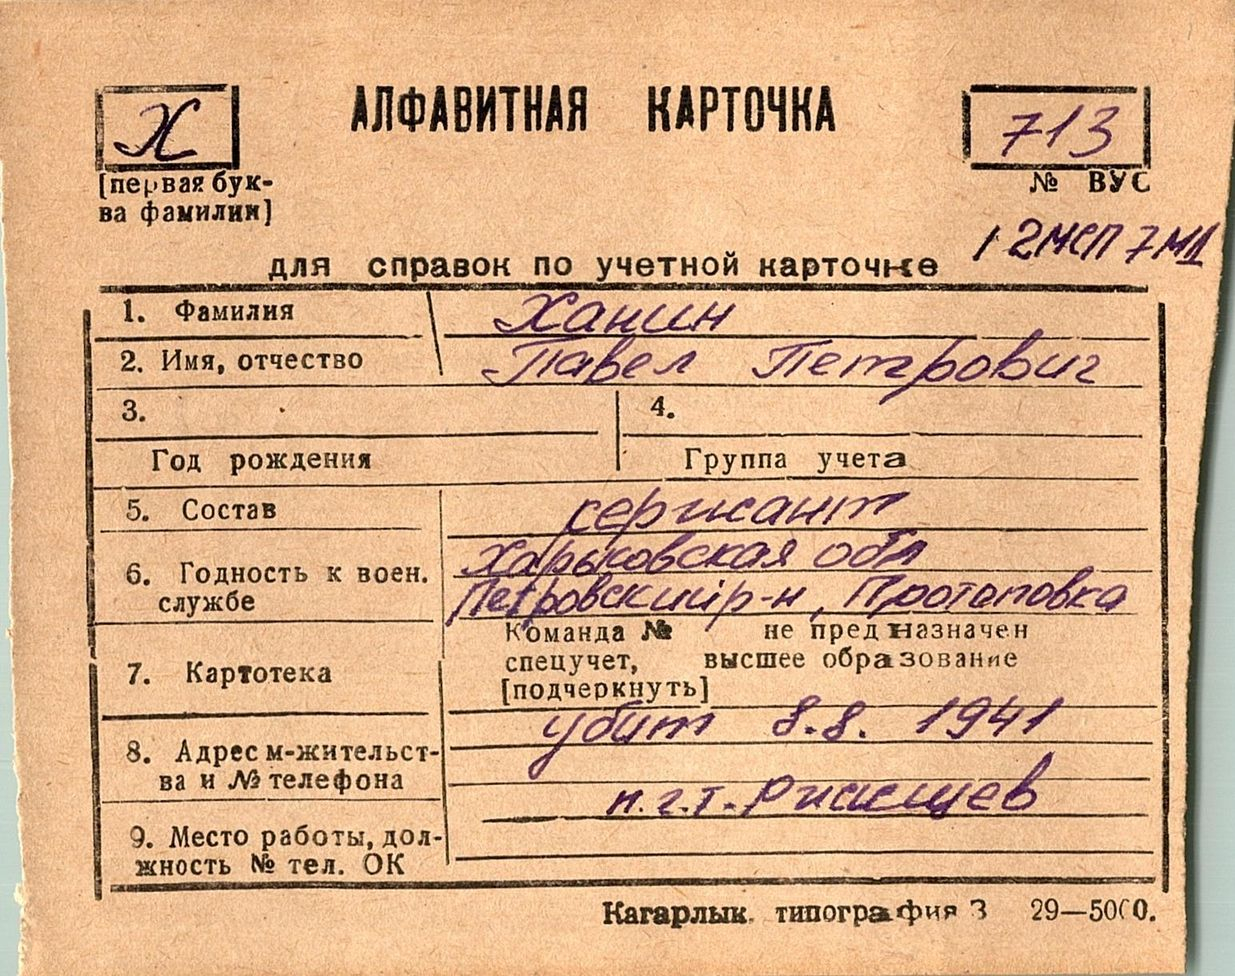 Х
АЛФАВИТНАЯ КАРТОЧКА
713
[первая бук-
ва фамилии]
№ ВУС
12МСП 7МД
для справок по учетной карточке
1. Фамилия Ханин
2. Имя, отчество Павел Петрович
3. 4.
Год рождения Группа учета
5. Состав сержант
6. Годность к воен. службе
Харьковская обл
Петровский р-н, Протоповка
7. Картотека
Команда № не предназначен
спецучет, высшее образование
[подчеркнуть]
убит 8.8. 1941
8. Адрес м-жительст-
ва и № телефона
п.г.т. Ржищев
9. Место работы, дол-
жность № тел. ОК
Кагарлык. типография З 29—5000.